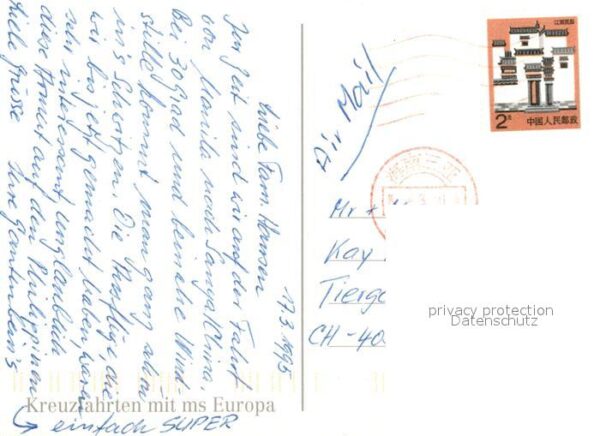 17.3.1995
Liebe Fam. Hansen
Jun gut sind wir auf der Fahrt
von Manila nach Sanya/China.
Bei 30 Grad und beinahe Wind-
stille kommt man ganz schön
ins Schwitzen. Die Ausflüge, die
wir bis jetzt gemacht haben waren
sehr interessant, unglaublich
diese Armut auf den Philippinen
Liebe Grüsse Ihre
Kreuzfahrten mit ms Europa
→ einfach SUPER
Air Mail
江西民居
2元
中国人民邮政
海南三亚
Mr +
Kay
Tierga
CH-40
privacy protection
Datenschutz